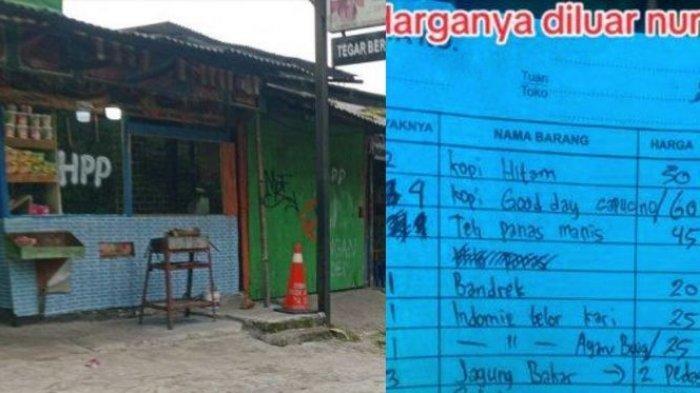 Harganya diluar nur
TEGAR BER
HPP
Tuan
Toko
YAKNYA NAMA BARANG HARGA
2 kopi Hitam 30
4 kopi Good day capucino / 60
Teh panas manis 45
1 Bandrek 20
1 Indomie telor kari 25
1 — 11 — Ayam Bawang / 25
3 Jagung Bakar → 2 pedas